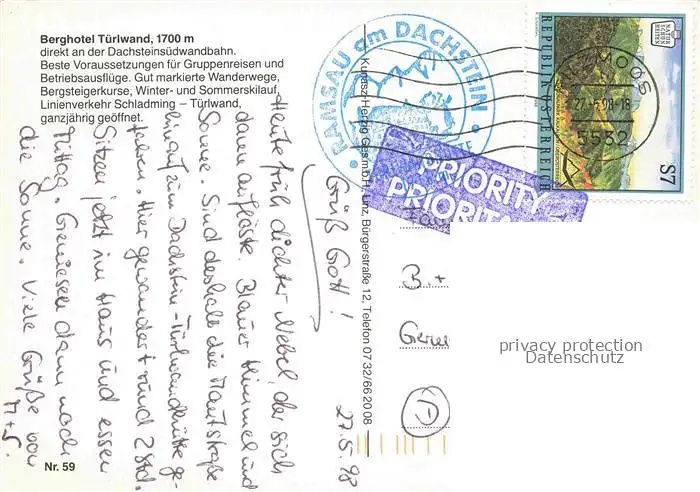 Berghotel Türlwand, 1700 m
direkt an der Dachsteinsüdwandbahn.
Beste Voraussetzungen für Gruppenreisen und
Betriebsausflüge. Gut markierte Wanderwege,
Bergsteigerkurse, Winter- und Sommerskilauf,
Linienverkehr Schladming – Türlwand,
ganzjährig geöffnet.
27.5.98
Grüß Gott!
Heute früh dichter Nebel, der sich
dann auflöste. Blauer Himmel und
Sonne. Sind deshalb die Mautstraße
hinauf zum Dachstein-Türlwandhütte ge-
fahren. Hier gewandert rund 2 Std.
Sitzen jetzt im Haus und essen
Mittag. Geniesen dann noch
die Sonne. Viele Grüße von
M+S.
Nr. 59
Ges.m.b.H., Linz, Bürgerstraße 12, Telefon 07 32/66 20 08
RAMSAU am DACHSTEIN
PRIORITY
REPUBLIK ÖSTERREICH
NATUR
SCHÖN
HEITEN
S7
MOOS
27.-5.98-18
5532
B.+
D
privacy protection
Datenschutz